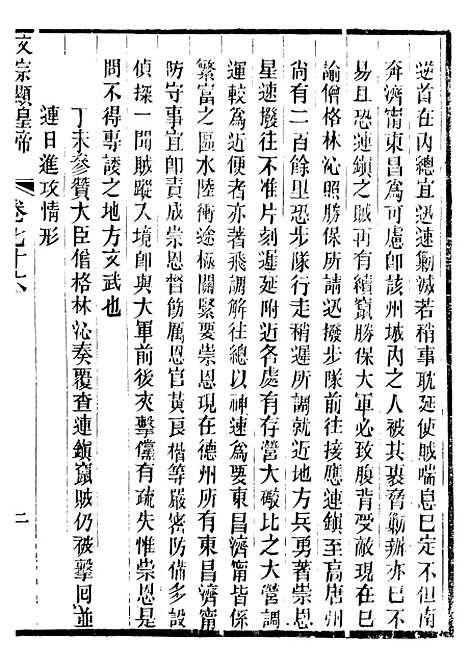 逆首在內總宜迅速勦滅若稍事耽延使賊喘息已定不但南
奔濟甯東昌爲可慮卽該州城內之人被其裹脅勦辦亦已不
易且恐連鎮之賊再有續竄勝保大軍必致腹背受敵現在已
諭僧格林沁照勝保所請迅撥步隊前往接應連鎮至高唐州
尙有二百餘里恐步隊行走稍遲所調就近地方兵勇著崇恩
星速撥往不准片刻遲延附近各處有存營大礮比之大營調
運較爲近便者亦著飛調解往總以神速爲要東昌濟甯皆係
繁富之區水陸衝途極關緊要崇恩現在德州所有東昌濟甯
防守事宜卽責成崇恩督飭厲恩官黃良楷等嚴密防備多設
偵探一聞賊蹤入境卽與大軍前後夾擊儻有疏失惟崇恩是
問不得專諉之地方文武也
丁未參贊大臣僧格林沁奏覆查連鎮竄賊仍被擊回並
連日進攻情形
文宗顯皇帝 卷七十六 二